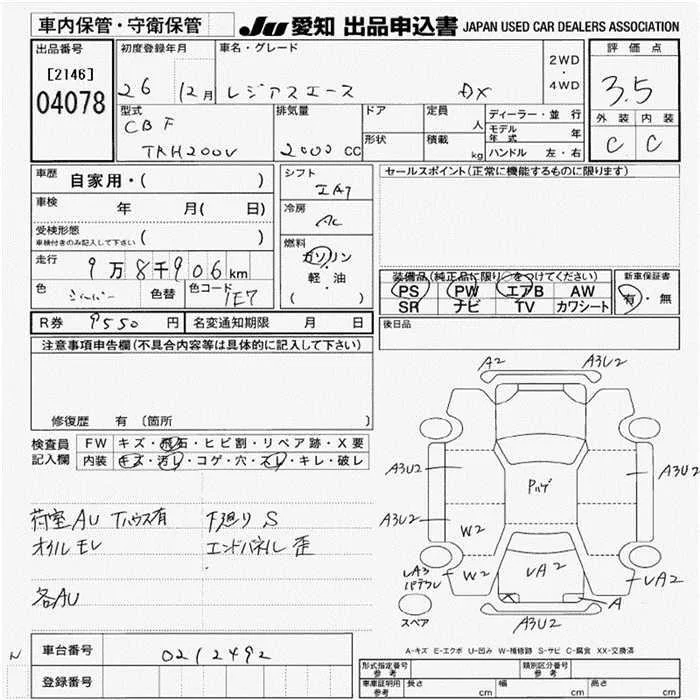 車内保管・守衛保管
JU 愛知 出品申込書 JAPAN USED CAR DEALERS ASSOCIATION
出品番号
[2146]
04078
初度登録年月
26 12月
車名・グレード
レジアスエース DX
2WD
・
4WD
評価点
3.5
外装 内装
C C
型式
CBF
TRH200V
排気量
2000 CC
ドア
形状
定員
人
積載
kg
ディーラー・並行
モデル年式 年
ハンドル 左・右
車歴 自家用・( )
車検 年 月( 日)
受検形態
車検付きのみ記入して下さい ( )
走行 9万8千906km
色 シルバー 色替 色コード 1E7
シフト
IAT
冷房
AC
燃料
ガソリン
・
軽・油
( )
セールスポイント(正常に機能するものに限ります)
装備品(純正品に限り○をつけてください)
PS PW エアB AW
SR ナビ TV カワシート
新車保証書
有・無
R券 9550 円 名変通知期限 月 日
後日品
注意事項申告欄(不具合内容等は具体的に記入して下さい)
修復歴 有 〔箇所 〕
検査員
記入欄
FW キズ・飛石・ヒビ割・リペア跡・X要
内装 キズ・汚レ・コゲ・穴・スレ・キレ・破レ
荷室AU Tハウス有 下廻りS
オイルモレ エンドパネル歪
各AU
A2 A3U2
A3U2 Pハゲ A3U2
A3U2 W2
UA3 W2 UA2 UA2
A
A3U2
スペア
A-キズ E-エクボ U-凹み W-補修跡 S-サビ C-腐食 XX-交換済
N
車台番号 0212492
登録番号
形式指定番号
参考
類別区分番号
参考
車車証明用
参考
長さ cm 幅 cm 高さ cm